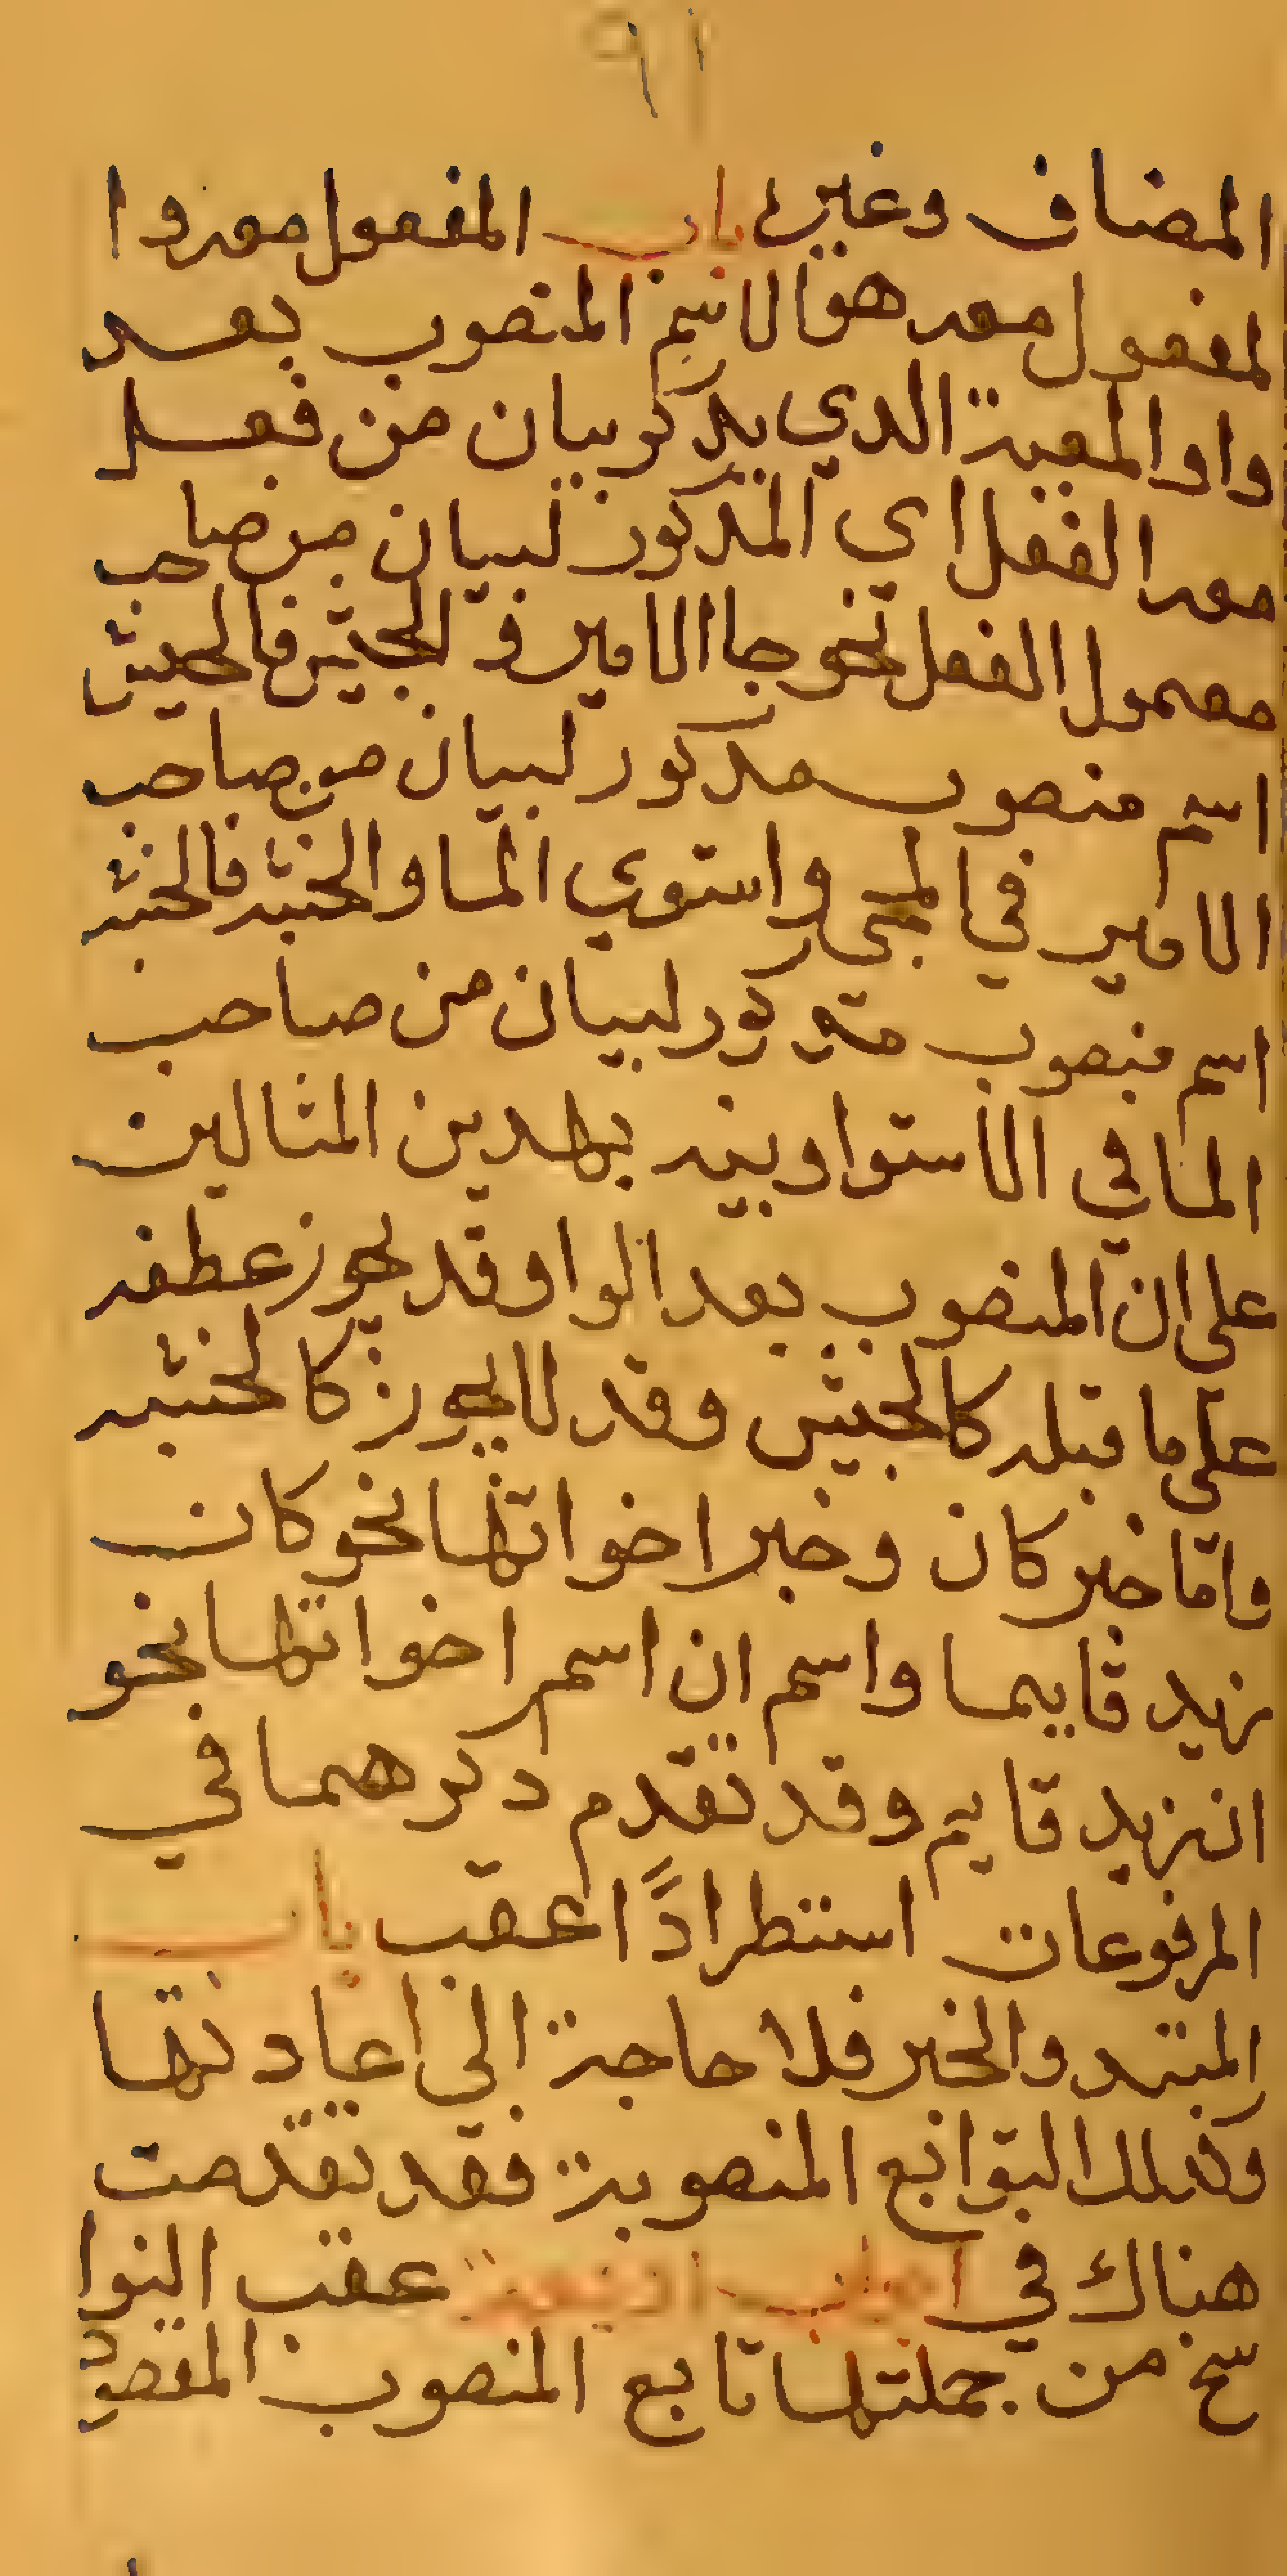 ٩١
المضاف وغيره باب المفعول معه وا
لمفعول معه هو الاسم المنصوب بعد
واو المعية الدي يدكر بيان من فعل
معه الفعل اي المدكور لبيان من صاحب
معمول الفعل نحو جا الامير و الجيش فالجيش
اسم منصوب مدكور لبيان من صاحب
الامير في المجي واستوي الما والخشبه فالخشبه
اسم منصوب مدكور لبيان من صاحب
الما في الاستوا وبنه بهدين المثالين
على ان المنصوب بعد الواو قد يجوز عطفه
على ما قبله كالجيش وقد لا يجوز كالخشبه
واما خبر كان وخبر اخواتها نحو كان
زيد قايما واسم ان اسم اخواتها نحو
ان زيد قايم وقد تقدم دكرهما في
المرفوعات استطرادًا عقب باب
المبتد والخبر فلا حاجة الى اعادتها
وكدلك التوابع المنصوبة فقد تقدمت
هناك في عقب النوا
سخ من جملتها تابع المنصوب المقصود